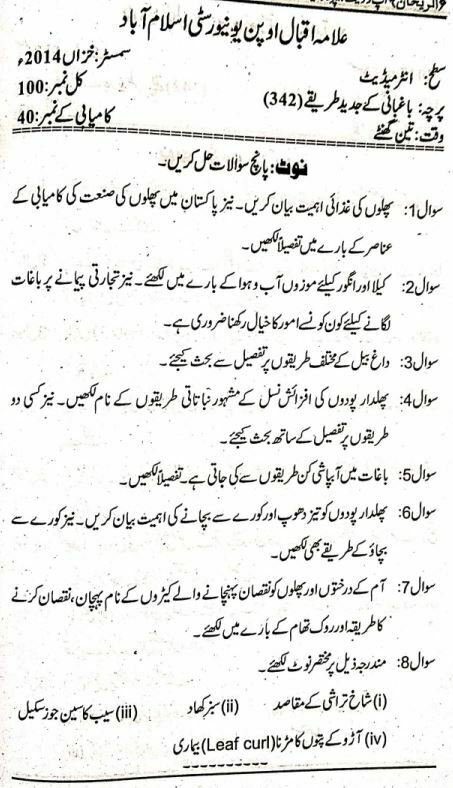 علامہ اقبال اوپن یونیورسٹی اسلام آباد
سطح: انٹرمیڈیٹ سمسٹر: خزاں 2014ء
پرچہ: باغبانی کے جدید طریقے (342) کل نمبر: 100
وقت: تین گھنٹے کامیابی کے نمبر: 40
نوٹ: پانچ سوالات حل کریں۔
سوال 1: پھلوں کی غذائی اہمیت بیان کریں۔ نیز پاکستان میں پھلوں کی صنعت کی کامیابی کے
عناصر کے بارے میں تفصیلاً لکھیں۔
سوال 2: کیلا اور انگور کیلئے موزوں آب و ہوا کے بارے میں لکھئے۔ نیز تجارتی پیمانے پر باغات
لگانے کیلئے کون کونسے امور کا خیال رکھنا ضروری ہے۔
سوال 3: داغ بیل کے مختلف طریقوں پر تفصیل سے بحث کیجئے۔
سوال 4: پھلدار پودوں کی افزائش نسل کے مشہور نباتاتی طریقوں کے نام لکھیں۔ نیز کسی دو
طریقوں پر تفصیل کے ساتھ بحث کیجئے۔
سوال 5: باغات میں آبپاشی کن طریقوں سے کی جاتی ہے۔ تفصیلاً لکھیں۔
سوال 6: پھلدار پودوں کو تیز دھوپ اور کورے سے بچانے کی اہمیت بیان کریں۔ نیز کورے سے
بچاؤ کے طریقے بھی لکھیں۔
سوال 7: آم کے درختوں اور پھلوں کو نقصان پہنچانے والے کیڑوں کے نام پہچان، نقصان کرنے
کا طریقہ اور روک تھام کے بارے میں لکھئے۔
سوال 8: مندرجہ ذیل پر مختصر نوٹ لکھئے۔
(i) شاخ تراشی کے مقاصد (ii) سبز کھاد (iii) سیب کا سین جوز سکیل
(iv) آڑو کے پتوں کا مڑنا (Leaf curl) بیماری